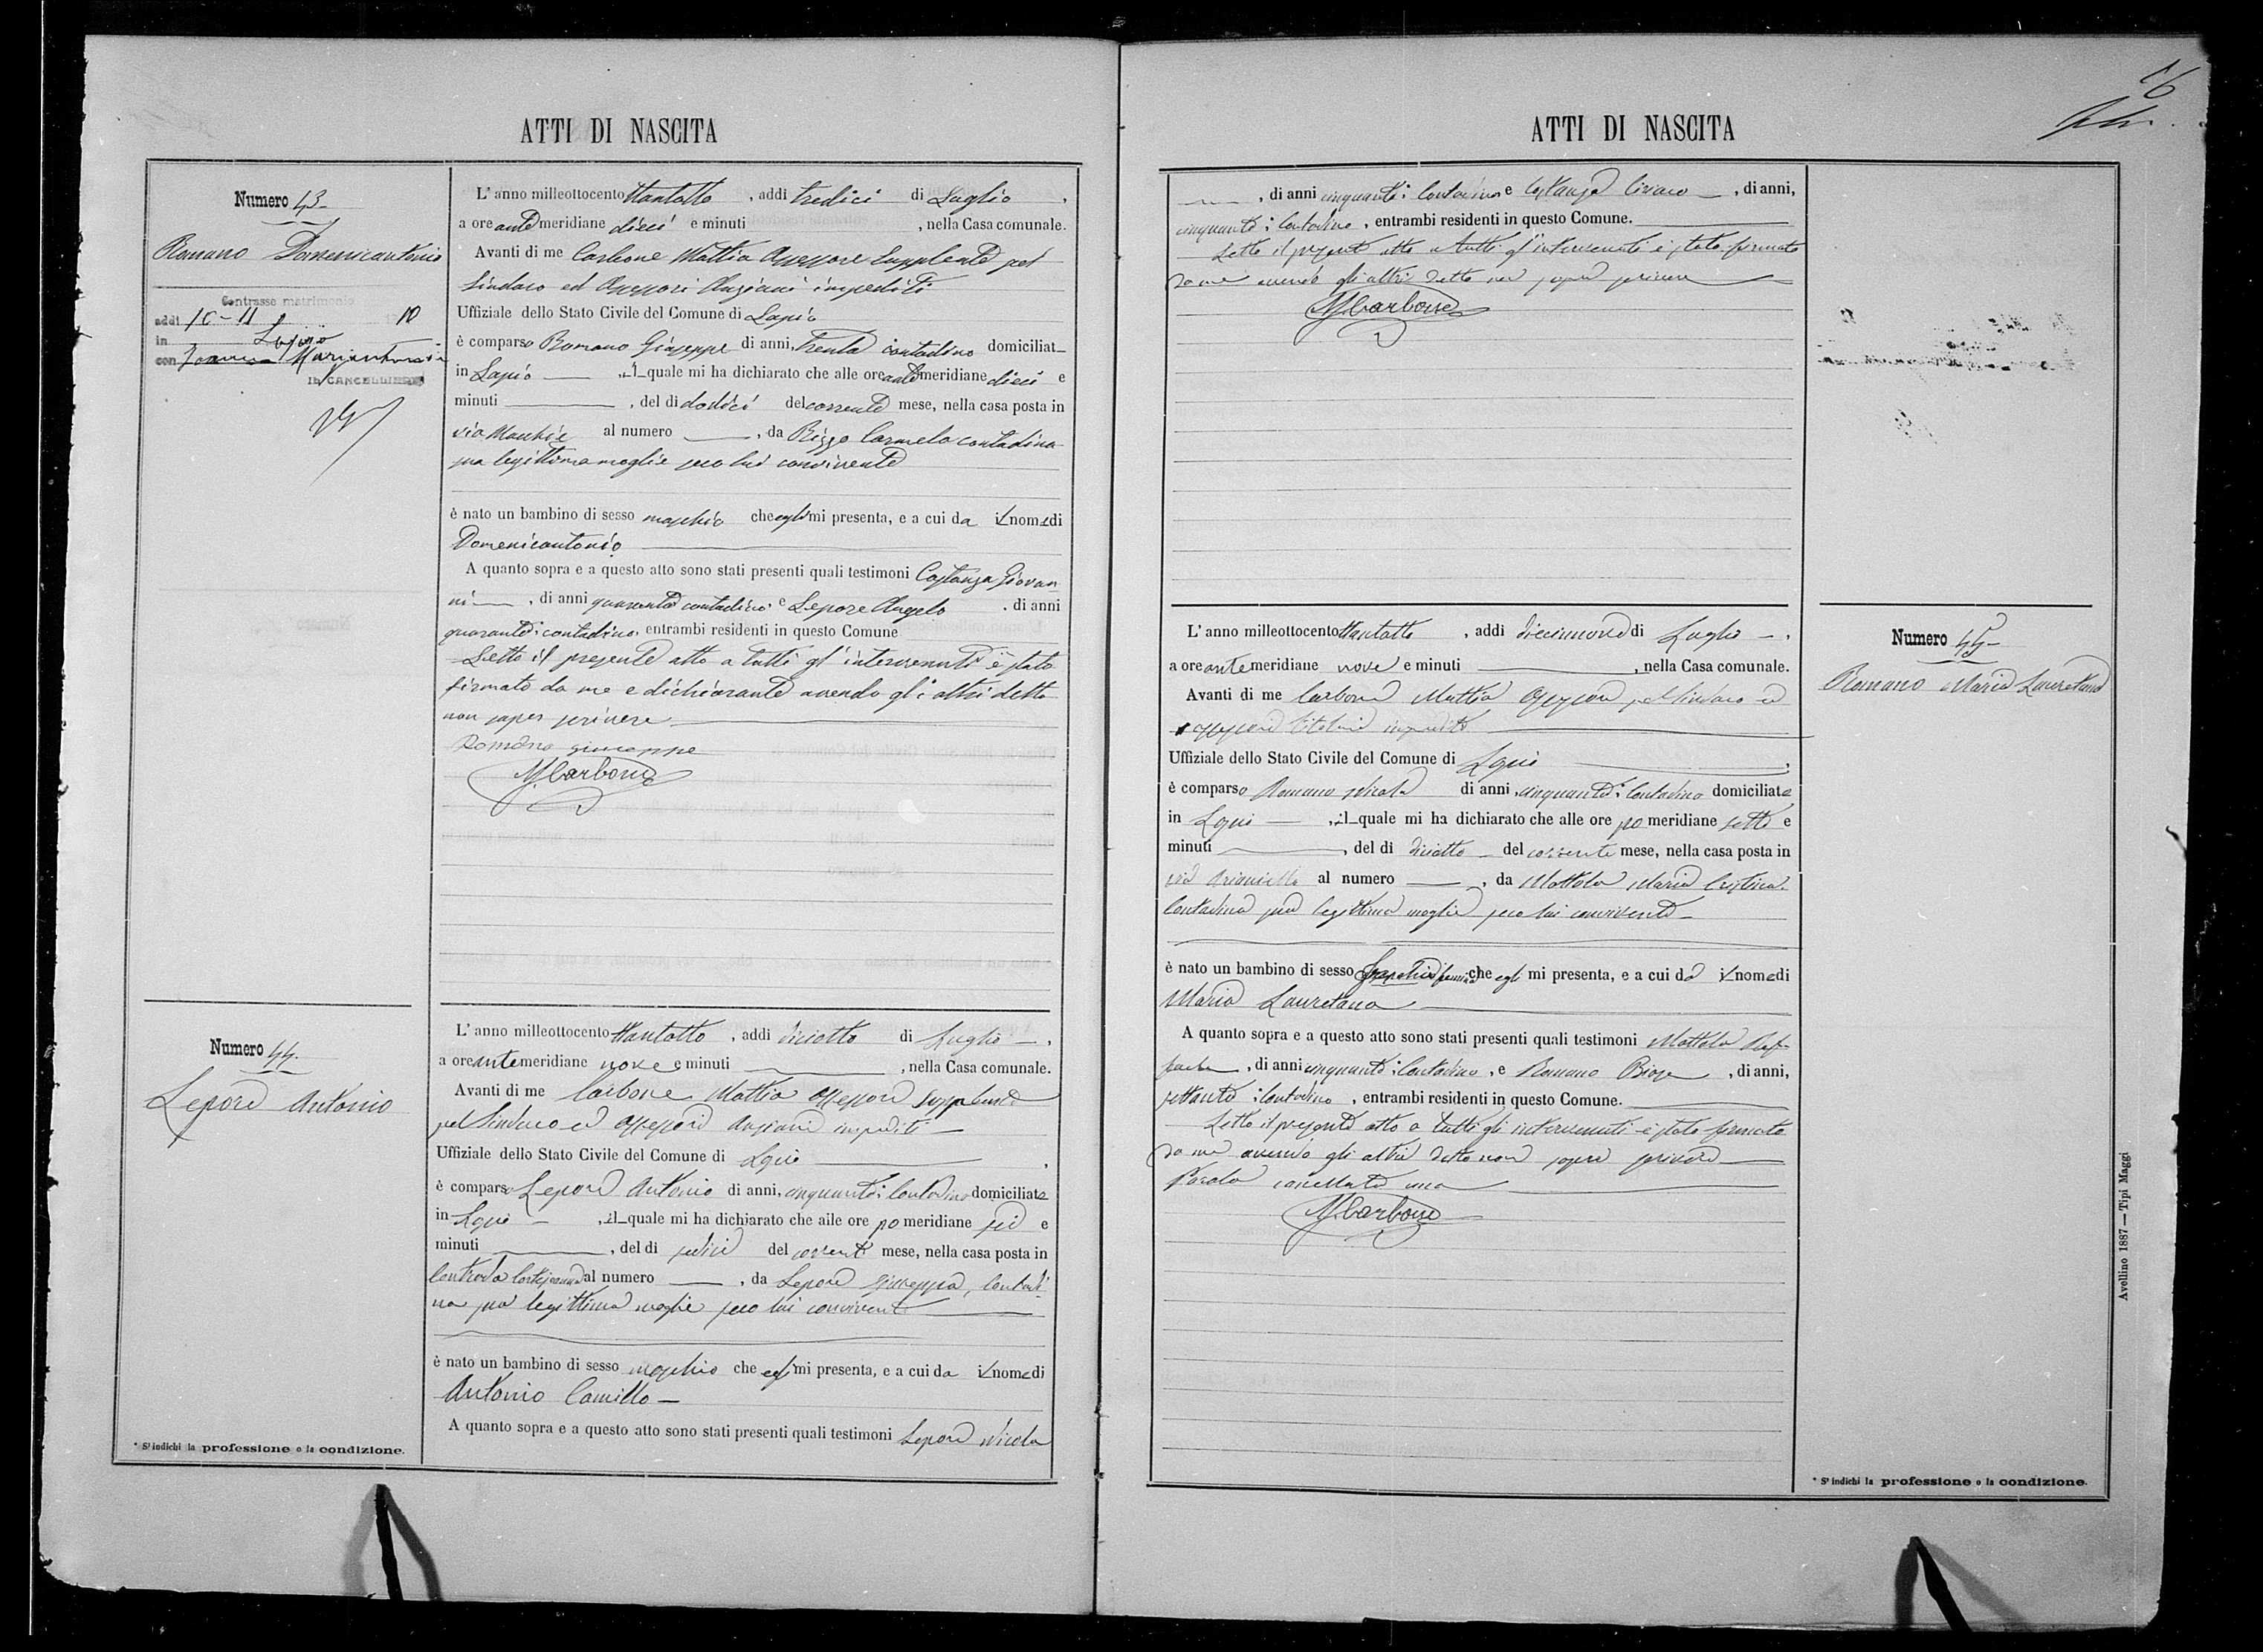 ATTI DI NASCITA
Numero 43
Romano Domenicantonio
Contrasse matrimonio
addì 10-11 10
in Lapio
con Mariantonia
IL CANCELLIERE
L' anno milleottocento ttantotto, addì tredici di Luglio,
a ore ante meridiane dieci e minuti , nella Casa comunale.
Avanti di me Carbone Mattia Assessore Supplente pel
Sindaco ed Assessori Anziani impediti
Uffiziale dello Stato Civile del Comune di Lapio
è comparso Romano Giuseppe di anni, trenta contadino domiciliat
in Lapio , il quale mi ha dichiarato che alle ore ante meridiane dieci e
minuti , del dì dodici del corrente mese, nella casa posta in
via Macchie al numero , da Rizzo Carmela contadina
sua legittima moglie seco lui convivente
è nato un bambino di sesso maschio che egli mi presenta, e a cui da il nome di
Domenicantonio
A quanto sopra e a questo atto sono stati presenti quali testimoni Costanza Giovan
ni , di anni quaranta contadino e Lepore Angelo . di anni
quaranta: contadino, entrambi residenti in questo Comune
Letto il presente atto a tutti gl' intervenuti è stato
firmato da me e dichiarante avendo gli altri detto
non saper scrivere
Romano Giuseppe
M Carbone
Numero 44.
Lepore Antonio
L' anno milleottocento ttantotto, addì diciotto di Luglio,
a ore ante meridiane nove e minuti , nella Casa comunale.
Avanti di me Carbone Mattia Assessore Supplente
pel Sindaco ed Assessori Anziani impediti
Uffiziale dello Stato Civile del Comune di Lapio
è comparso Lepore Antonio di anni, cinquanta: Contadino domiciliato
in Lapio , il quale mi ha dichiarato che alle ore po meridiane sei e
minuti , del dì sedici del corrente mese, nella casa posta in
Contrada al numero , da Lepore Giuseppa, Contadi
na sua legittima moglie seco lui convivente
è nato un bambino di sesso maschio che egli mi presenta, e a cui da il nome di
Antonio Camillo
A quanto sopra e a questo atto sono stati presenti quali testimoni Lepore Nicola
* S' indichi la professione o la condizione.
16
ATTI DI NASCITA
, di anni cinquanta: Contadino e Costanza Ciriaco , di anni,
cinquanta: Contadino, entrambi residenti in questo Comune.
Letto il presente atto a tutti gl'intervenuti è stato firmato
da me avendo gli altri detto non sapere scrivere
M Carbone
Numero 45
Romano Maria Lauretana
L' anno milleottocento ttantotto, addì diecinnove di Luglio,
a ore ante meridiane nove e minuti , nella Casa comunale.
Avanti di me Carbone Mattia Assessore pel Sindaco ed
assessori titolari impediti
Uffiziale dello Stato Civile del Comune di Lapio
è comparso Romano Nicola di anni, cinquanta: Contadino domiciliato
in Lapio , il quale mi ha dichiarato che alle ore po meridiane sette e
minuti , del dì diciotto del corrente mese, nella casa posta in
via al numero , da Mottola Maria Cristina
Contadina sua legittima moglie seco lui convivente
è nato un bambino di sesso maschio femmina che egli mi presenta, e a cui dà il nome di
Maria Lauretana
A quanto sopra e a questo atto sono stati presenti quali testimoni Mottola Raf-
faele , di anni cinquanta: Contadino, e Romano Biase , di anni,
settanta: Contadino , entrambi residenti in questo Comune.
Letto il presente atto a tutti gli intervenuti è stato firmato
da me avendo gli altri detto non sapere scrivere
Parola cancellata una
M Carbone
* S' indichi la professione o la condizione.
Avellino 1887 — Tipi Maggi